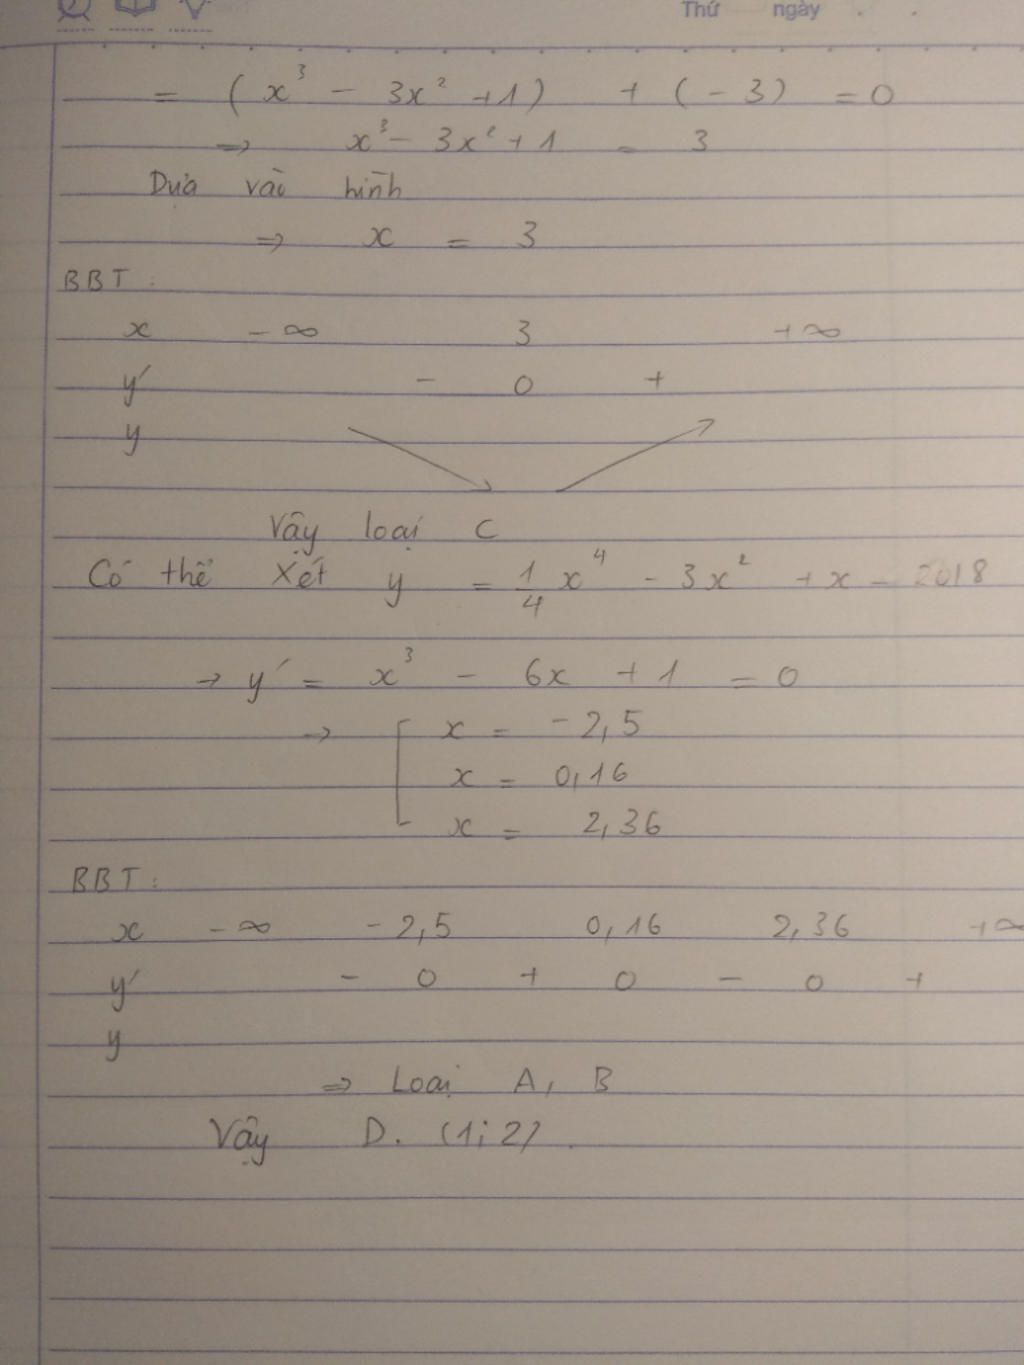 Thứ ngày
= (x³ - 3x² + 1) + (-3) = 0
⇒ x³ - 3x² + 1 = 3
Dựa vào hình
⇒ x = 3
BBT:
x -∞ 3 +∞
y' - 0 +
y
Vậy loại C
Có thể Xét y = 1/4 x⁴ - 3x² + x - 2018
→ y' = x³ - 6x + 1 = 0
→ [ x = -2,5
x = 0,16
x = 2,36
BBT:
x -∞ -2,5 0,16 2,36 +∞
y' - 0 + 0 - 0 +
y
⇒ Loại A, B
Vậy D. (1;2).